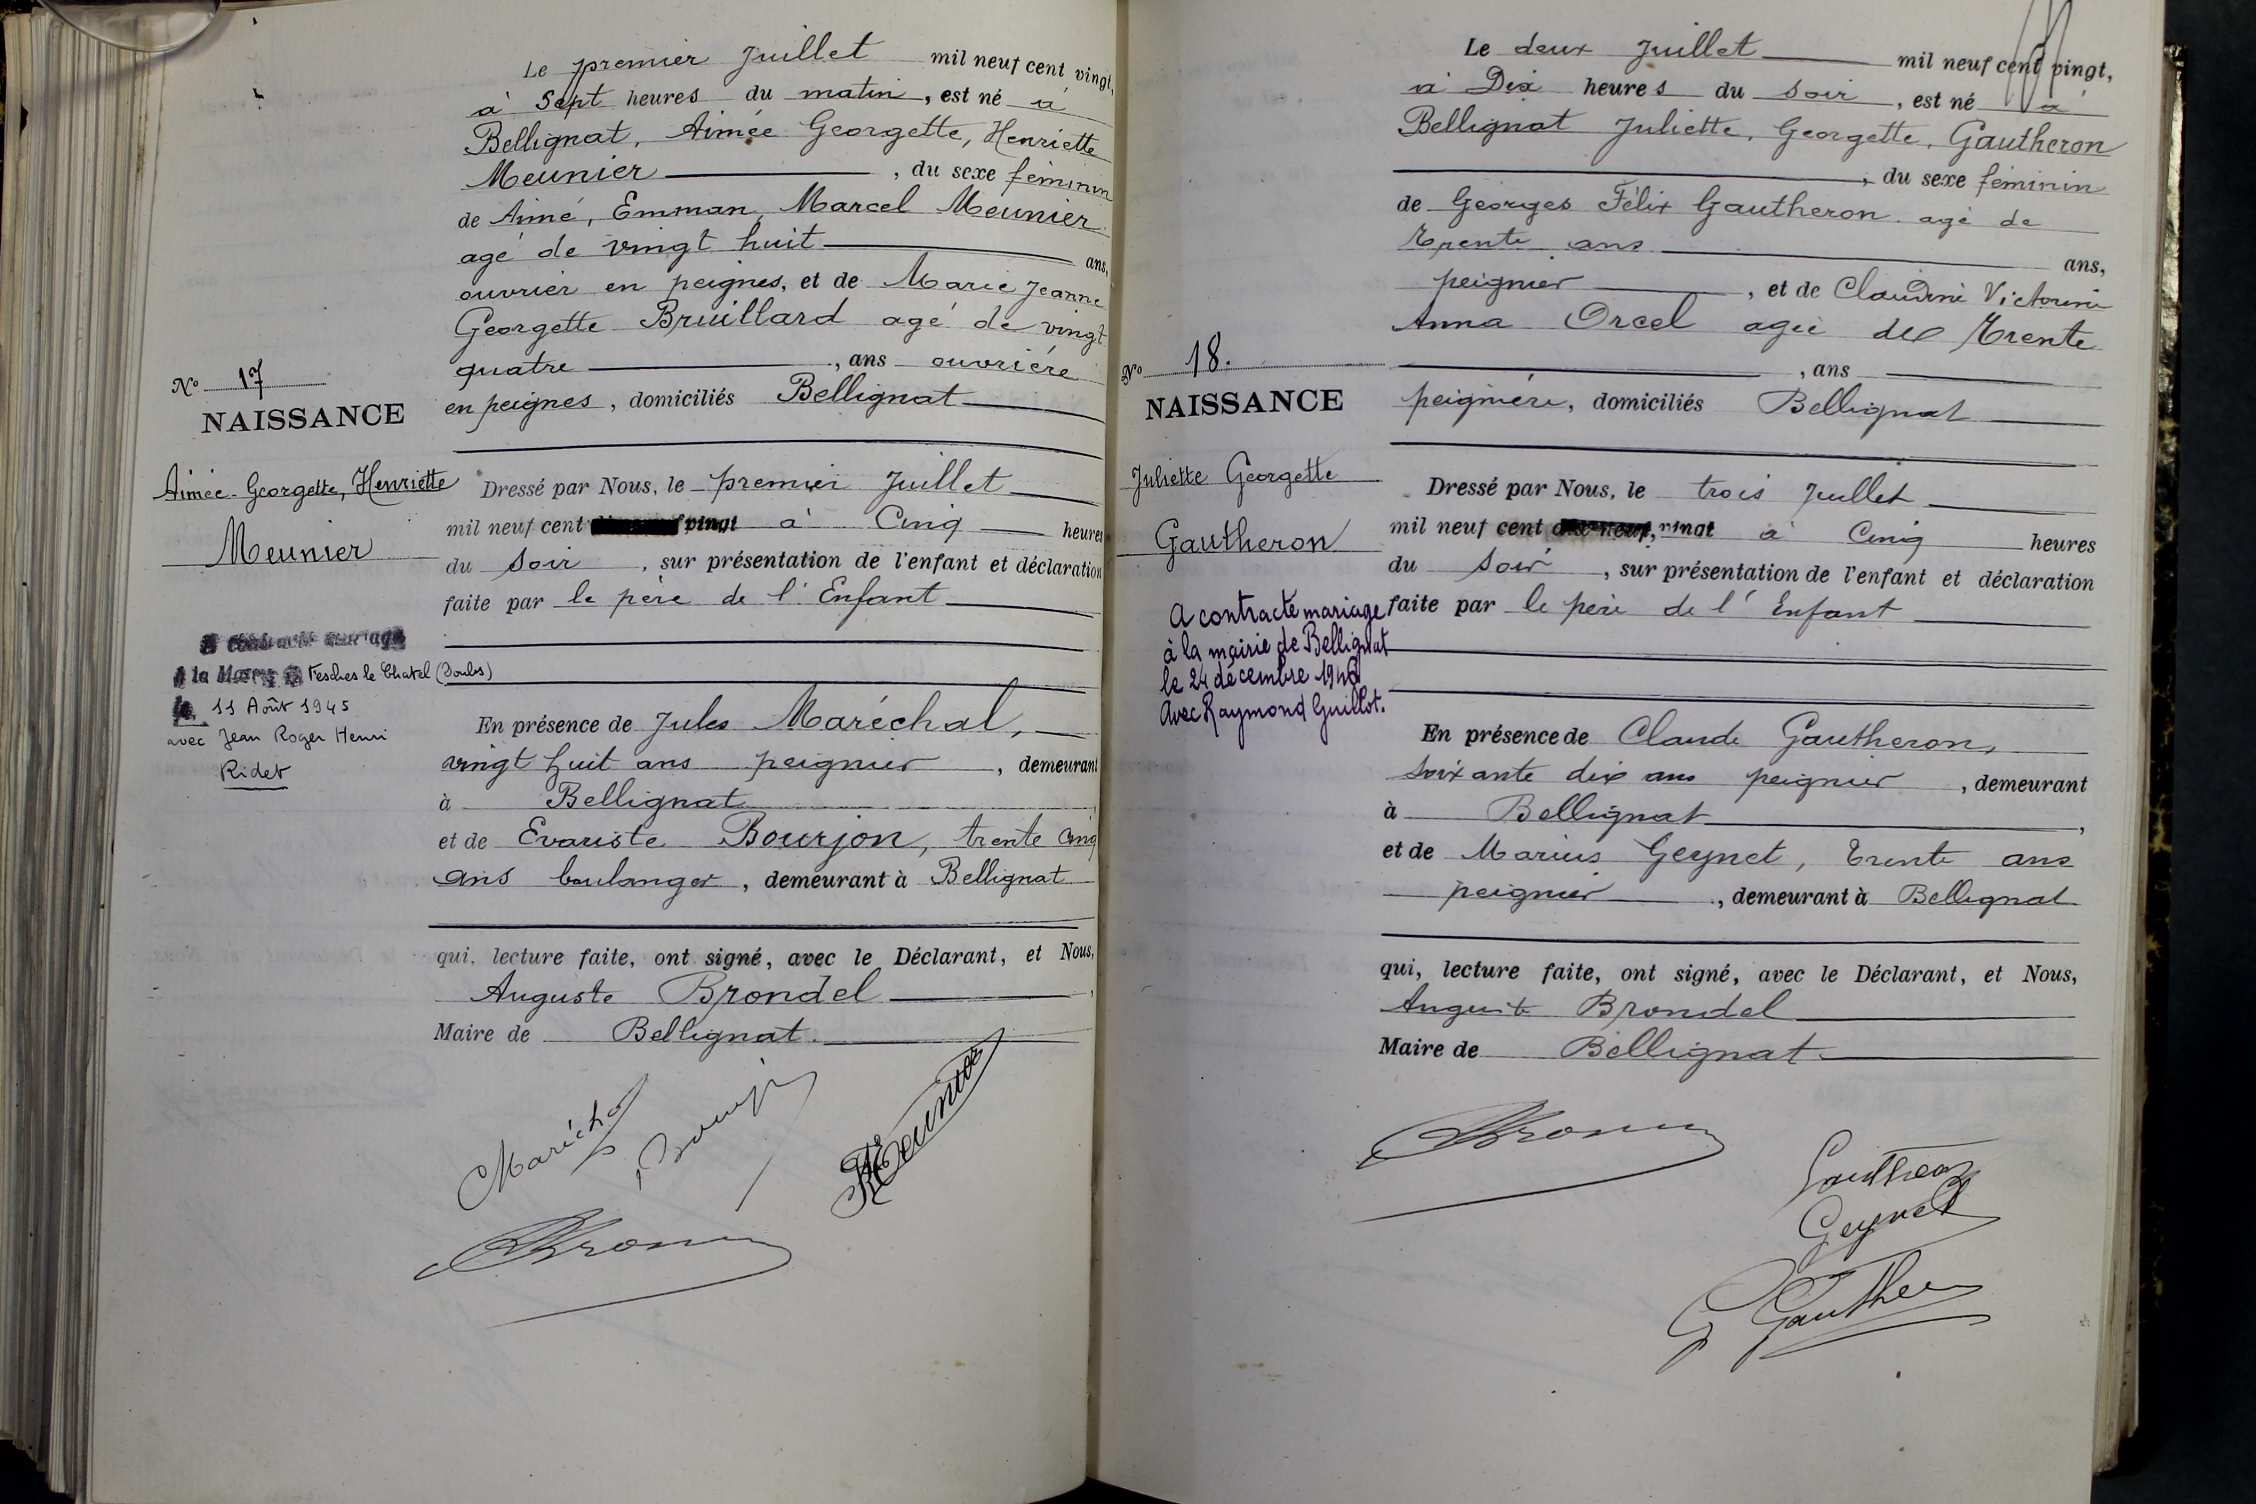 Le premier Juillet mil neuf cent vingt,
à Sept heures du matin, est né à
Bellignat, Aimée Georgette, Henriette
Meunier, du sexe féminin
de Aimé, Emman, Marcel Meunier
agé de vingt huit ans,
ouvrier en peignes, et de Marie Jeanne
Georgette Bruillard agé de vingt
quatre, ans ouvrière
en peignes, domiciliés Bellignat
No 17
NAISSANCE
Aimée Georgette, Henriette
Meunier
Dressé par Nous, le premier Juillet
mil neuf cent vingt à Cinq heures
du Soir, sur présentation de l'enfant et déclaration
faite par le père de l'Enfant
A contracté mariage
à la Mairie de Fesches le Chatel (Doubs)
le 11 Août 1945
avec Jean Roger Henri
Ridet
En présence de Jules Maréchal,
vingt huit ans peignier, demeurant
à Bellignat
et de Evariste Bourjon, trente cinq
ans boulanger, demeurant à Bellignat
qui, lecture faite, ont signé, avec le Déclarant, et Nous,
Auguste Brondel,
Maire de Bellignat.
Maréchal
Bourjon
Meunier
Le deux Juillet mil neuf cent vingt,
à Dix heures du soir, est né à
Bellignat Juliette, Georgette, Gautheron
, du sexe féminin
de Georges Félix Gautheron agé de
Trente ans ans,
peignier, et de Claudine Victorine
Anna Orcel agée de Trente
, ans
peignière, domiciliés Bellignat
No 18.
NAISSANCE
Juliette Georgette
Gautheron
Dressé par Nous, le trois Juillet
mil neuf cent dix-neuf, vingt à Cinq heures
du Soir, sur présentation de l'enfant et déclaration
faite par le père de l'Enfant
A contracté mariage
à la mairie de Bellignat
le 24 décembre 1946
Avec Raymond Guillot.
En présence de Claude Gautheron,
soixante dix ans peignier, demeurant
à Bellignat,
et de Marius Geynet, Trente ans
peignier, demeurant à Bellignat
qui, lecture faite, ont signé, avec le Déclarant, et Nous,
Auguste Brondel
Maire de Bellignat
Gautheron
Geynet
G Gautheron